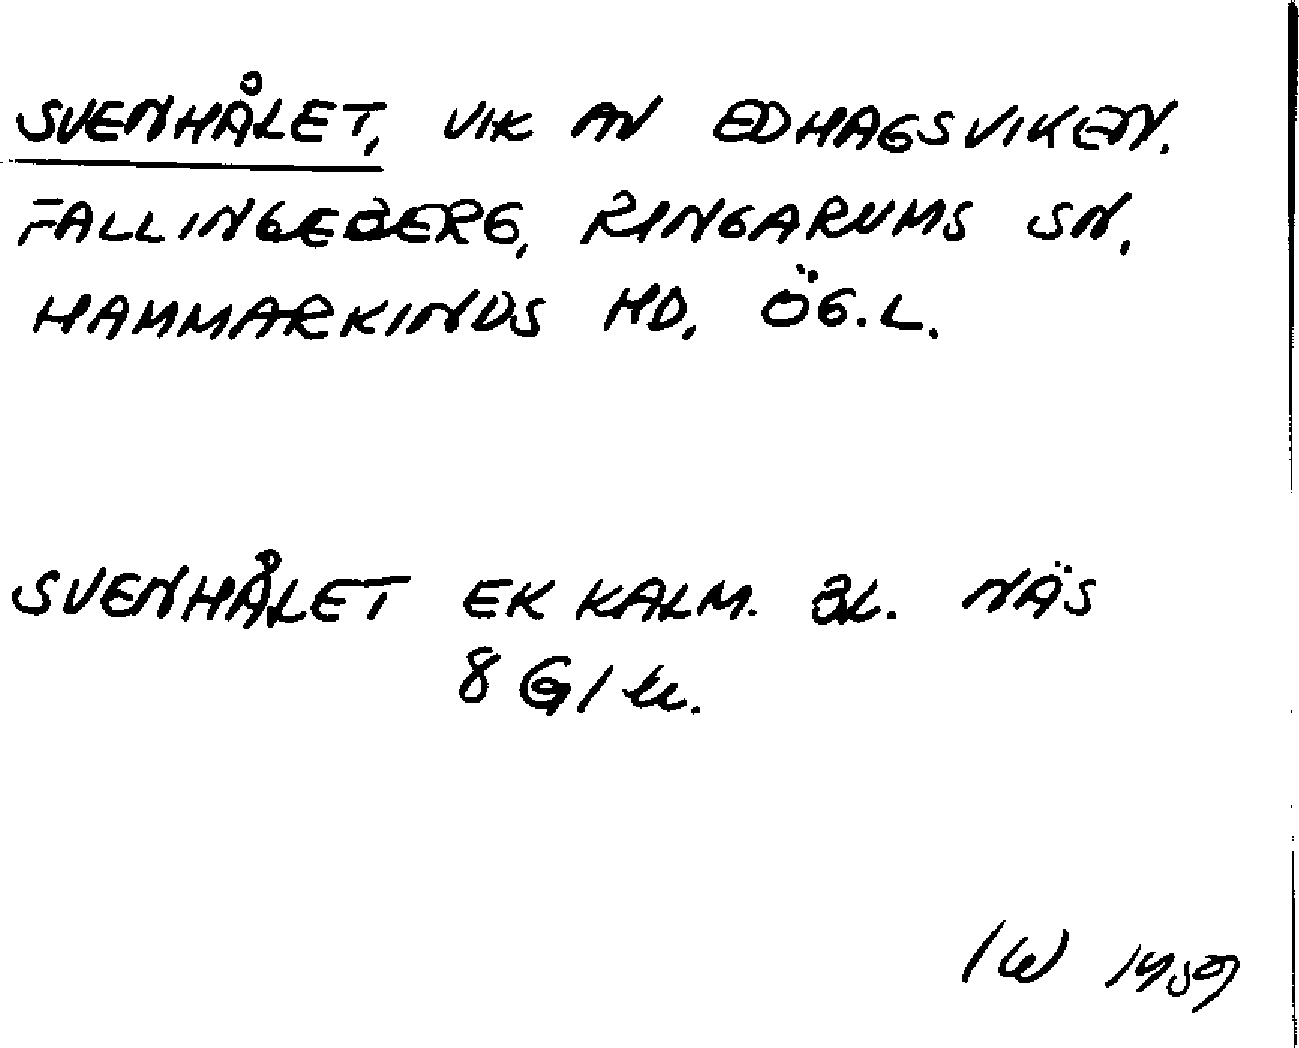 SVENHÅLET, VIK AV EDHAGSVIKEN.
FALLINGEBERG, RINGARUMS SN,
HAMMARKINDS HD, ÖG.L.
SVENHÅLET EK KALM. BL. NÄS
8 G/k.
IW 1959